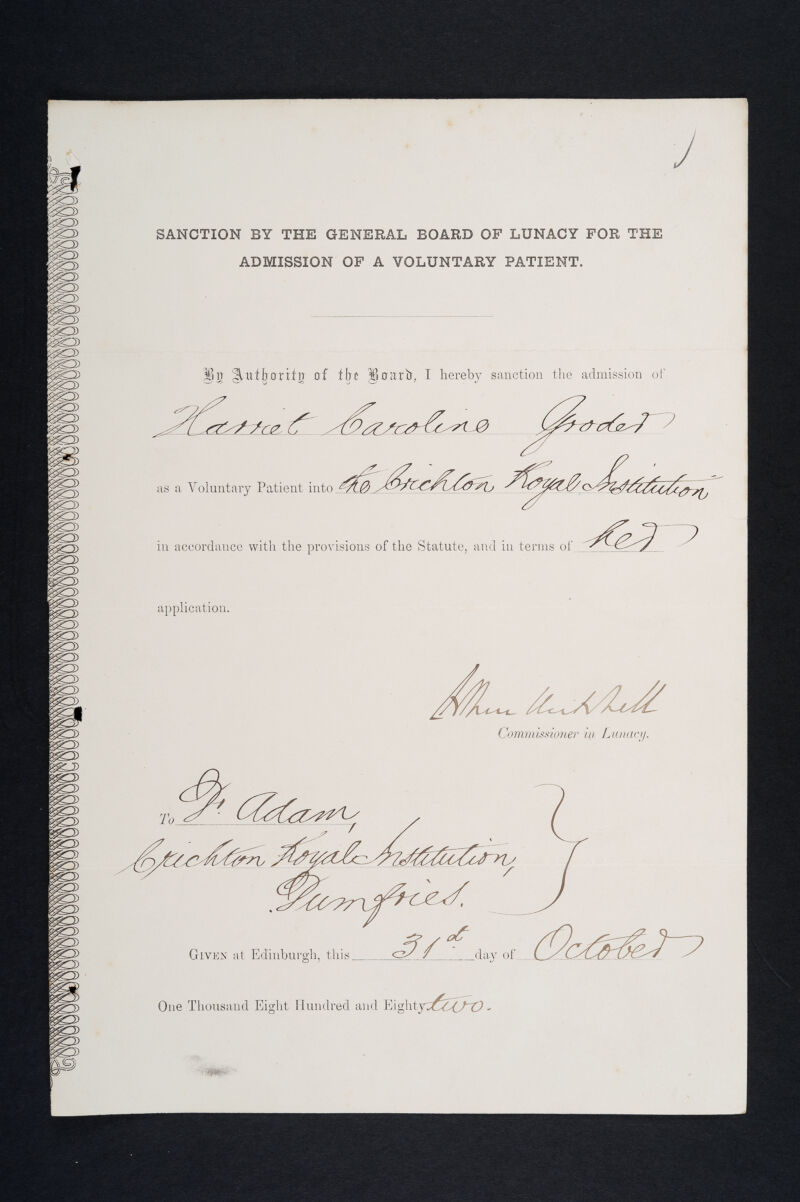 SANCTION BY THE GENERAL BOARD OF LUNACY FOR THE
ADMISSION OF A VOLUNTARY PATIENT.
By Authority of the Board, I hereby sanction the admission of
Harriet Caroline
as a Voluntary Patient into the Crichton Royal Institution
in accordance with the provisions of the Statute, and in terms of her
application.
Arthur Mitchell
Commissioner in Lunacy.
To Dr. Adam,
Crichton Royal Institution,
Dumfries.
GIVEN at Edinburgh, this 31st day of October
One Thousand Eight Hundred and Eighty two.